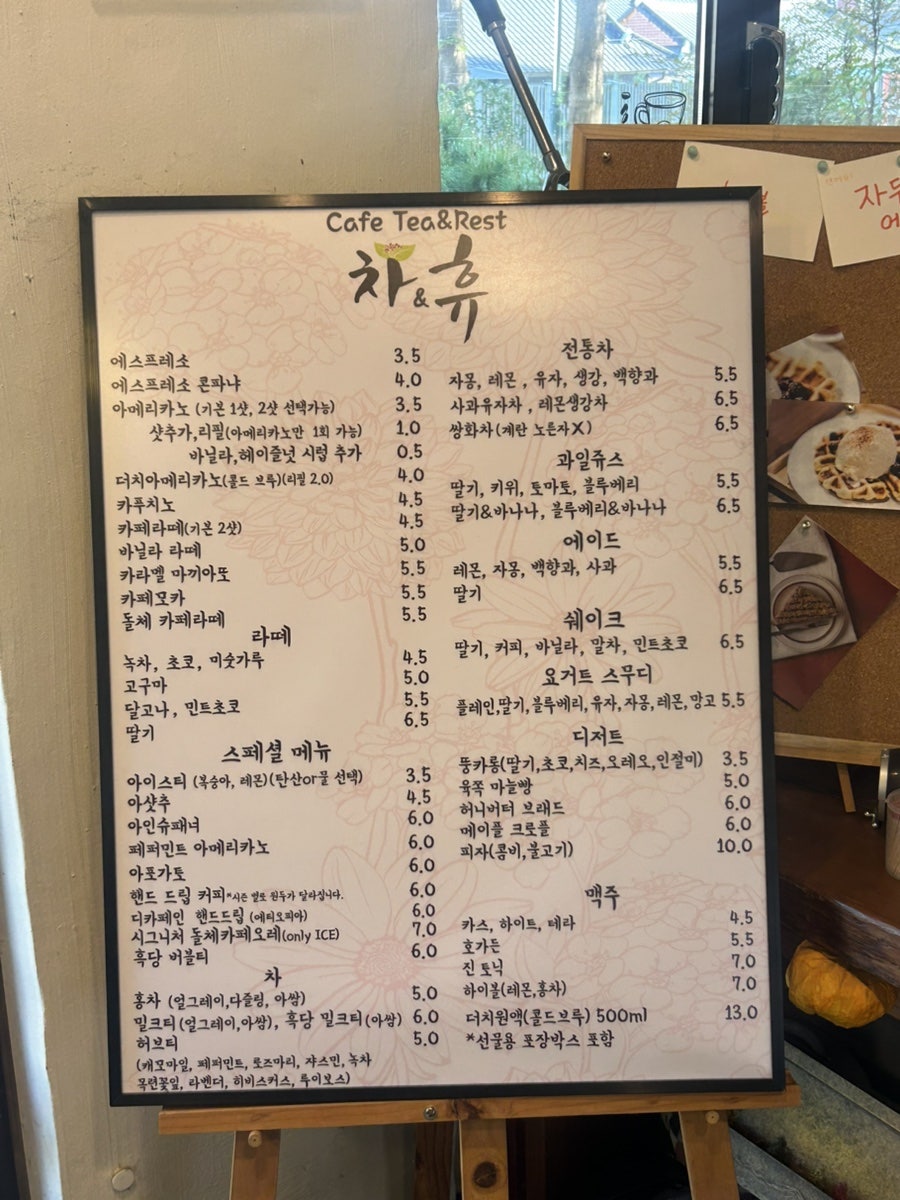 Cafe Tea&Rest
차&휴
에스프레소 3.5
에스프레소 콘파냐 4.0
아메리카노 (기본 1샷, 2샷 선택가능) 3.5
샷추가,리필(아메리카노만 1회 가능) 1.0
바닐라,헤이즐넛 시럽 추가 0.5
더치아메리카노(콜드 브루)(리필 2.0) 4.0
카푸치노 4.5
카페라떼(기본 2샷) 4.5
바닐라 라떼 5.0
카라멜 마끼아또 5.5
카페모카 5.5
돌체 카페라떼 5.5
라떼
녹차, 초코, 미숫가루 4.5
고구마 5.0
달고나, 민트초코 5.5
딸기 6.5
스페셜 메뉴
아이스티 (복숭아, 레몬)(탄산or물 선택) 3.5
아샷추 4.5
아인슈패너 6.0
페퍼민트 아메리카노 6.0
아포가토 6.0
핸드 드립 커피*시즌 별로 원두가 달라집니다. 6.0
디카페인 핸드드립 (에티오피아) 6.0
시그니처 돌체카페오레(only ICE) 7.0
흑당 버블티 6.0
차
홍차 (얼그레이,다즐링, 아쌈) 5.0
밀크티(얼그레이,아쌈), 흑당 밀크티(아쌈) 6.0
허브티 5.0
(캐모마일, 페퍼민트, 로즈마리, 쟈스민, 녹차
목련꽃잎, 라벤더, 히비스커스, 루이보스)
전통차
자몽, 레몬 , 유자, 생강, 백향과 5.5
사과유자차 , 레몬생강차 6.5
쌍화차(계란 노른자X) 6.5
과일쥬스
딸기, 키위, 토마토, 블루베리 5.5
딸기&바나나, 블루베리&바나나 6.5
에이드
레몬, 자몽, 백향과, 사과 5.5
딸기 6.5
쉐이크
딸기, 커피, 바닐라, 말차, 민트초코 6.5
요거트 스무디
플레인,딸기,블루베리,유자,자몽,레몬,망고 5.5
디저트
뚱카롱(딸기,초코,치즈,오레오,인절미) 3.5
육쪽 마늘빵 5.0
허니버터 브래드 6.0
메이플 크로플 6.0
피자(콤비,불고기) 10.0
맥주
카스, 하이트, 테라 4.5
호가든 5.5
진 토닉 7.0
하이볼(레몬,홍차) 7.0
더치원액(콜드브루) 500ml 13.0
*선물용 포장박스 포함